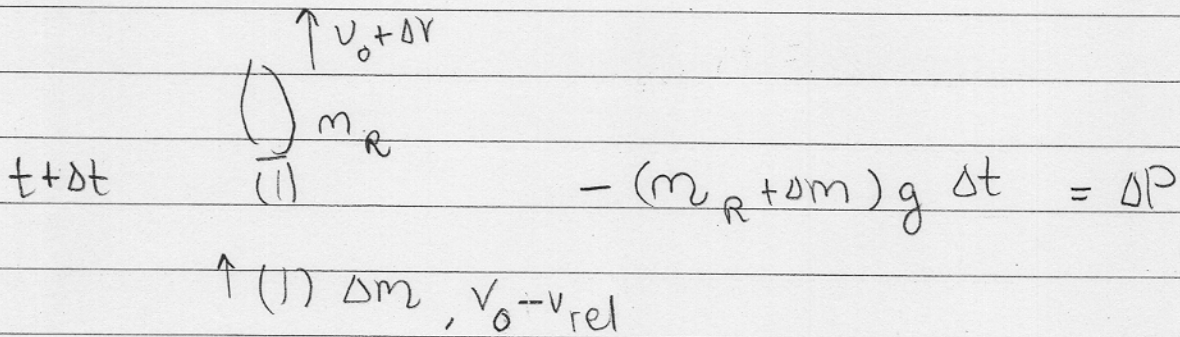 v₀+Δv
m_R
t+Δt
(1)
-(m_R+Δm)g Δt = ΔP
↑ (1) Δm, v₀-v_rel